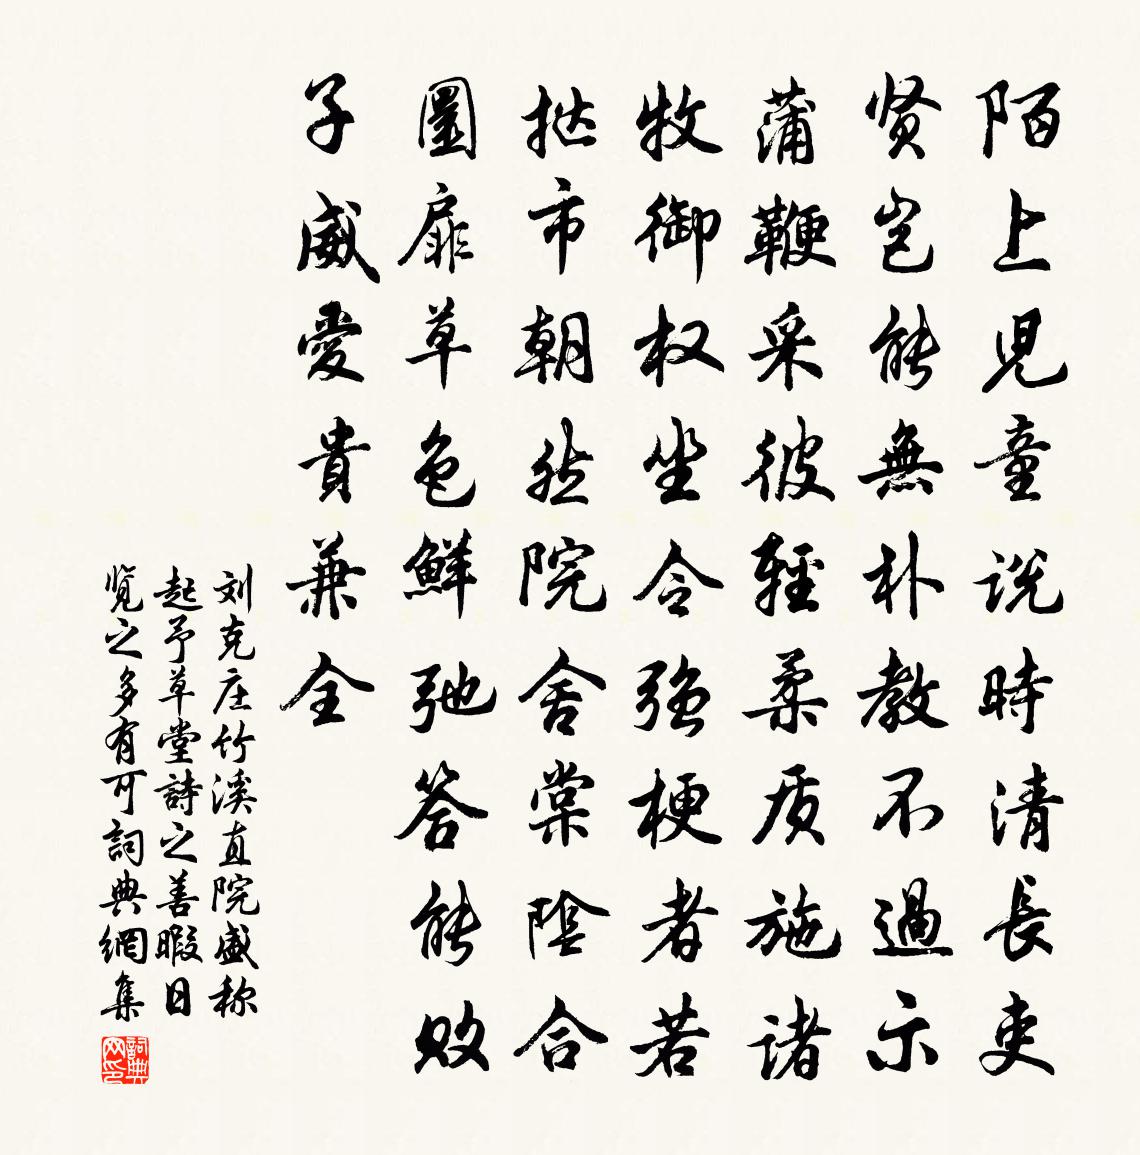 陌上児童说時清長吏
贤岂能無朴教不過示
蒲鞭采彼輕柔质施诸
牧御权坐令强梗者若
挞市朝然院舍棠陰合
圜扉草色鮮弛答能敗
子威愛貴兼全
刘克庄竹溪直院盛称
起予草堂詩之善暇日
览之多有可詞典網集
詞典网印